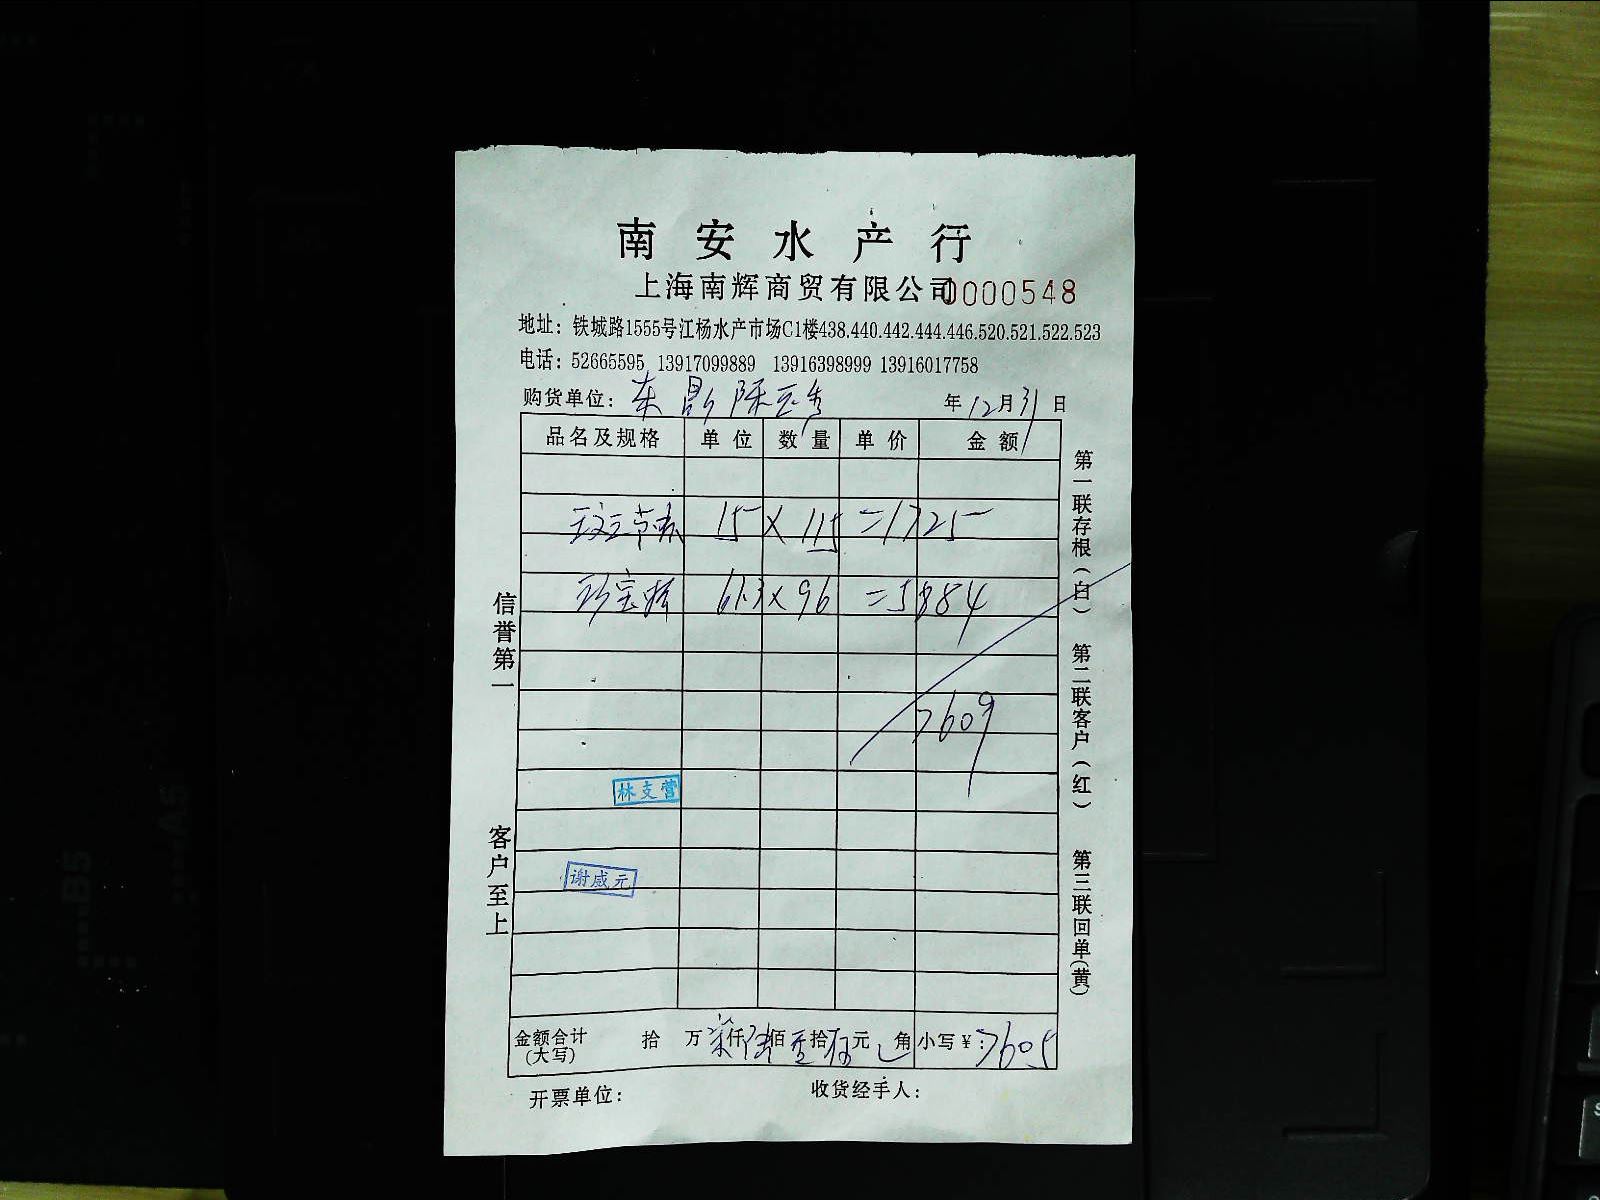 南安水产行
上海南辉商贸有限公司 0000548
地址：铁城路1555号江杨水产市场C1楼438.440.442.444.446.520.521.522.523
电话：52665595 13917099889 13916398999 13916017758
购货单位： 年12月31日
品名及规格 单位 数量 单价 金额
15 × 115 = 1725
61.3 × 96 = 5884
7609
林支营
谢咸元
金额合计（大写） 拾 万 柒仟陆佰零拾伍元 角 小写￥：7605
开票单位： 收货经手人：
信誉第一 客户至上
第一联存根（白） 第二联客户（红） 第三联回单（黄）